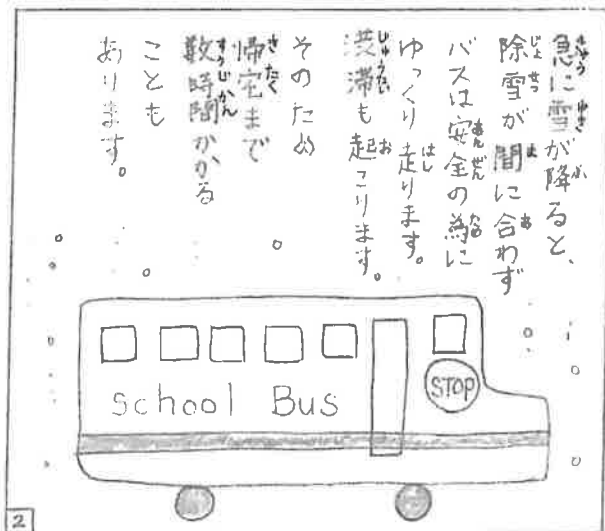 急に雪が降ると、
除雪が間に合わず
バスは安全の為に
ゆっくり走ります。
渋滞も起こります。
そのため
帰宅まで
数時間かかる
ことも
あります。
STOP
School Bus
2